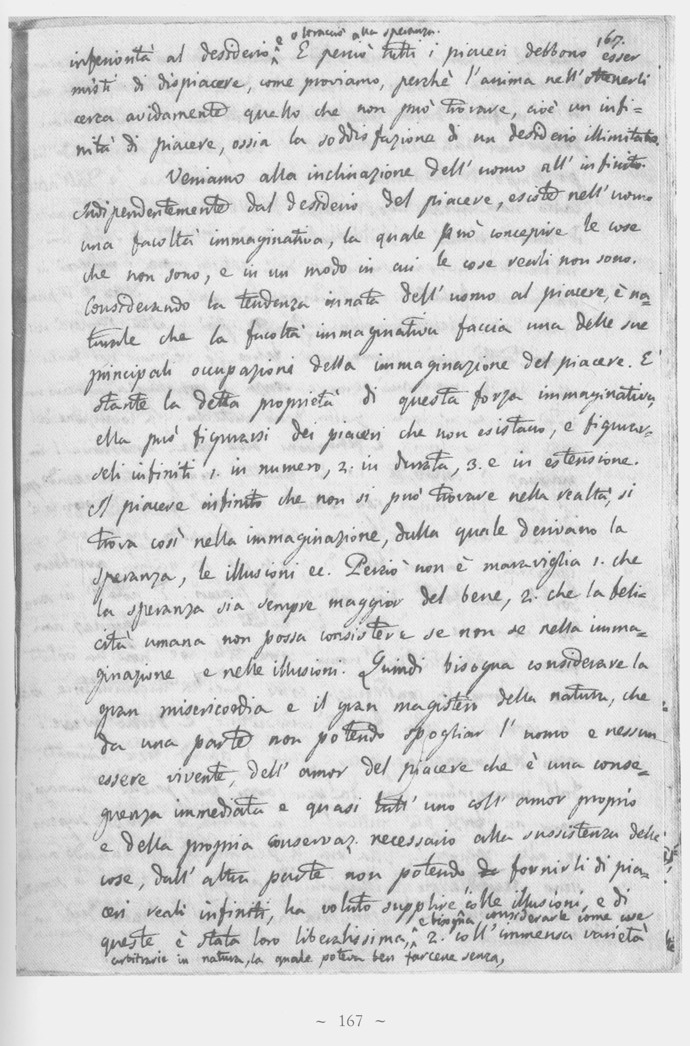 167.
inferiorità al desiderio, e E perciò tutti i piaceri debbono esser
o tornato alla speranza.
misti di dispiacere, come proviamo, perchè l'anima nell'ottenerli
cerca avidamente quello che non può trovare, cioè un infi-
nità di piacere, ossia la soddisfazione di un desiderio illimitato.
Veniamo alla inclinazione dell'uomo all'infinito.
Indipendentemente dal desiderio del piacere, esiste nell'uomo
una facoltà immaginativa, la quale può concepire le cose
che non sono, e in un modo in cui le cose reali non sono.
Considerando la tendenza innata dell'uomo al piacere, è na-
turale che la facoltà immaginativa faccia una delle sue
principali occupazioni della immaginazione del piacere. E
stante la detta proprietà di questa forza immaginativa,
ella può figurarsi dei piaceri che non esistano, e figurar-
seli infiniti 1. in numero, 2. in durata, 3. e in estensione.
Il piacere infinito che non si può trovare nella realtà, si
trova così nella immaginazione, dalla quale derivano la
speranza, le illusioni ec. Perciò non è maraviglia 1. che
la speranza sia sempre maggior del bene, 2. che la feli-
cità umana non possa consistere se non se nella imma-
ginazione e nelle illusioni. Quindi bisogna considerare la
gran misericordia e il gran magistero della natura, che
da una parte non potendo spogliar l'uomo e nessun
essere vivente, dell'amor del piacere che è una conse-
guenza immediata e quasi tutt'uno coll'amor proprio
e della propria conservaz. necessario alla sussistenza delle
cose, dall'altra parte non potendo fornirli di pia-
ceri reali infiniti, ha voluto supplire 1. colle illusioni, e di
queste è stata loro liberalissima, e bisogna considerarle come cose
arbitrarie in natura, la quale poteva ben farcene senza,
2. coll'immensa varietà
~ 167 ~